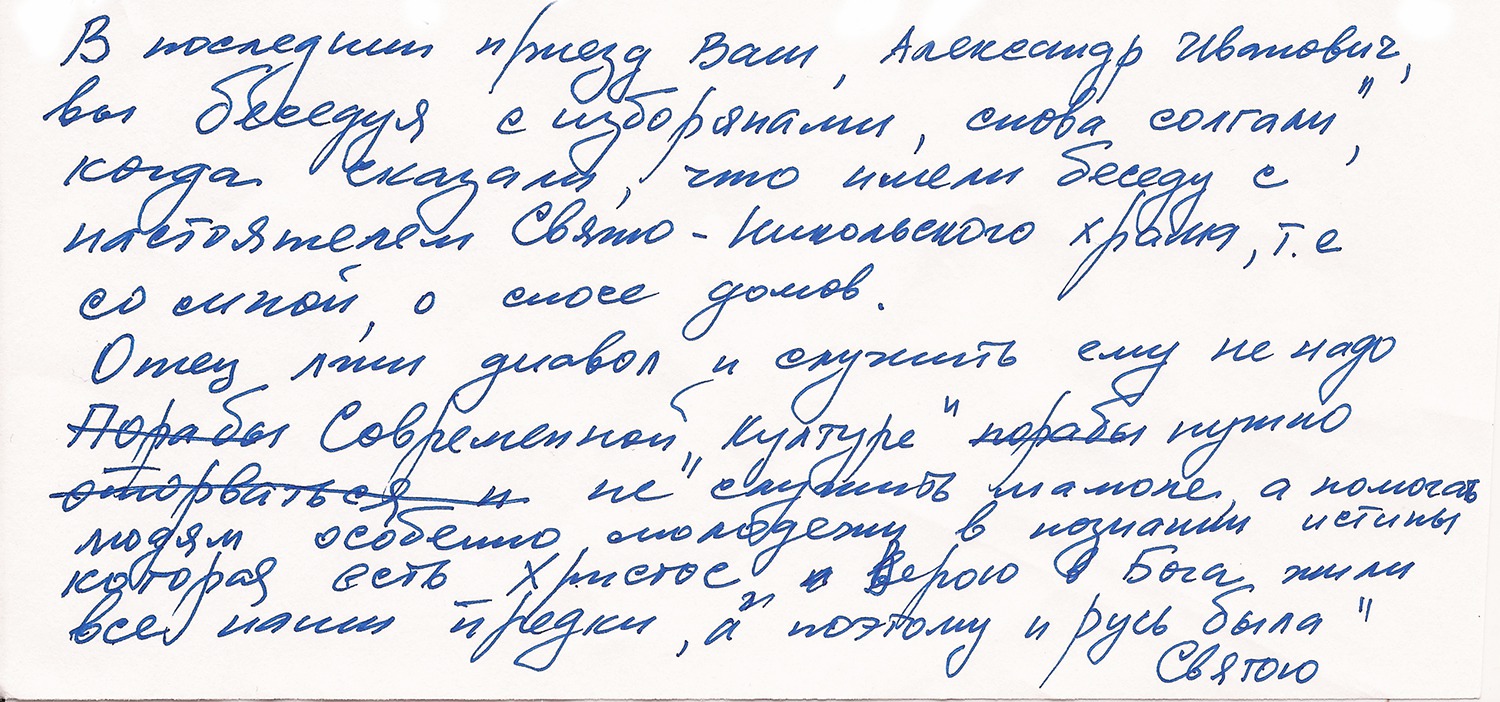 В последний приезд Ваш, Александр Иванович,
вы беседуя с изборянами, снова солгали",
когда сказали, что имели беседу с
настоятелем Свято-Никольского храма, т.е
со мной, о сносе домов.
Отец лжи диавол и служить ему не надо
Порабы Современной "Културе" порабы нужно
оторваться и не "служить мамоне, а помогать
людям особенно молодежи в познании истины
которая есть Христос и Верою в Бога жили
все наши предки, а поэтому и русь была "
Святою